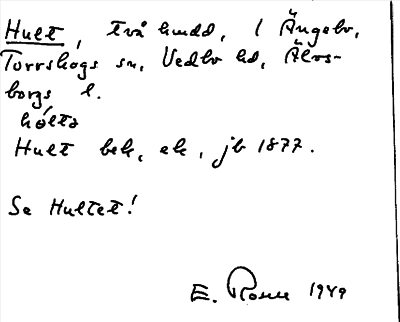 Hult, två hmdd, 1 Ängebo,
Torrskogs sn, Vedbo hd, Älvs-
borgs l.
hólta
Hult bek, ek, jb 1877.
Se Hultet!
E. Rosell 1949